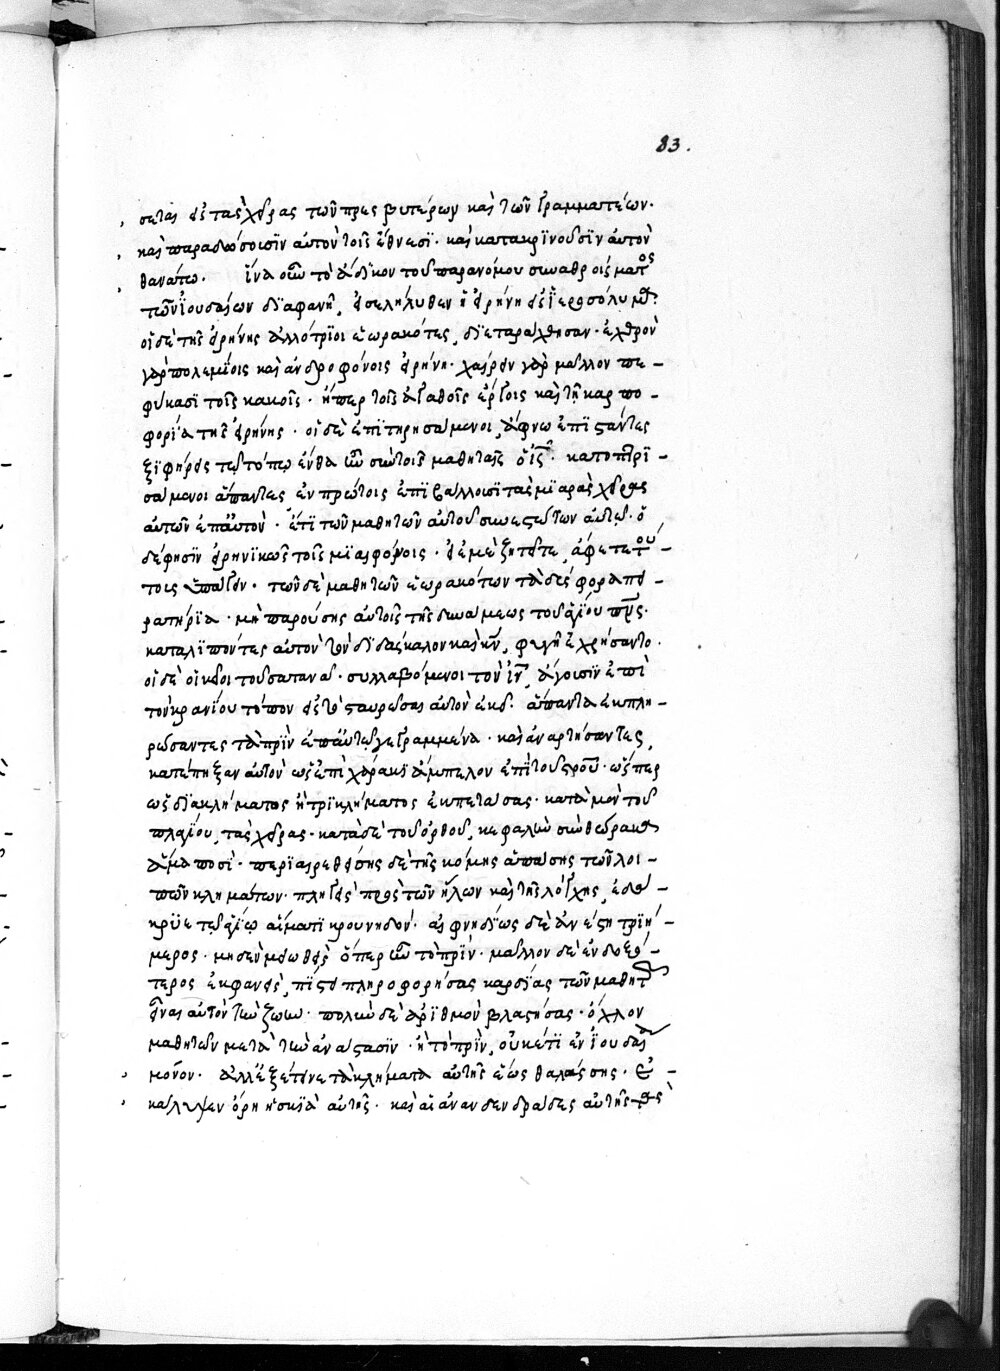 83.
σεται εἰς τὰς χεῖρας τῶν πρεσβυτέρων καὶ τῶν γραμματέων·
καὶ παραδώσουσϊν αὐτὸν τοῖς ἔθνεσϊ· καὶ κατακρϊνοῦσϊν αὐτὸν
θανάτω· ἵνα οὖν τὸ ἄδικον τοῦ παρανόμου συναθροίσματος
τῶν ϊουδαίων δϊαφανῆ, εἰσελήλυθεν ἡ εἰρήνη εἰς ϊεροσόλυμα·
οἱ δὲ τῆς εἰρήνης ἀλλότρϊοι ἑωρακότες, δϊεταράχθησαν· ἐχθρὸν
γὰρ πολεμίοις καὶ ἀνδροφόνοις εἰρήνη· χαίρειν γὰρ μᾶλλον πε-
φύκασϊ τοῖς κακοῖς· ἤπερ τοῖς ἀγαθοῖς ἔργοις καὶ τῆ καρπο-
φορία τῆς εἰρήνης· οἱ δὲ ἐπϊτηρησάμενοι, ἄφνω ἐπϊστάντες
ξϊφήρεις τῶ τόπω ἔνθα ἦν σὺν τοῖς μαθηταῖς ὁ ις· κατοπτρϊ-
σάμενοι ἅπαντες ἐν πρώτοις ἐπϊβάλλουσϊ τὰς μϊαρὰς χεῖρας
αὐτῶν ἐπ αὐτὸν· ἔτϊ τῶν μαθητῶν αὐτοῦ συνεστώτων αὐτῶ· ὁ
δέ φησϊν εἰρηνϊκῶς τοῖς μϊαιφόνοις· εἰ ἐμὲ ζητεῖτε, ἄφετε τού-
τοις ὑπάγειν· τῶν δὲ μαθητῶν ἑωρακότων τὰ δεισφορα πει-
ρατήρϊα· μὴ παρούσης αὐτοῖς τῆς δυνάμεως τοῦ ἁγίου πνς·
καταλϊπόντες αὐτὸν τὸν δϊδάσκαλον καὶ κν, φυγῆ ἐχρήσαντο·
οἱ δὲ οἰκεῖοι τοῦ σατανᾶ· συλλαβόμενοι τὸν ιν, ἄγουσϊν ἐπὶ
τὸν κρανίου τόπον εἰς τὸ σταυρῶσαι αὐτὸν ἐκεῖ· ἅπαντα ἐκπλη-
ρώσαντες τὰ πρϊν ἐπ αὐτῶ γεγραμμένα· καὶ ἀναρτήσαντες,
κατέπηξαν αὐτὸν ὡς ἐπὶ χάρακϊ ἄμπελον ἐπὶ τοῦ σροῦ· ὥσπερ
ὡς δϊακλήματος ἢ τρϊκλήματος ἐκπετάσας· κατὰ μὲν τοῦ
πλαγίου, τὰς χεῖρας· κατὰ δὲ τοῦ ὀρθοῦ, κεφαλὴν σὺν θώρακι
ἅμα ποσί· περϊαιρεθείσης δὲ τῆς κόμης ἁπάσης τῶν λοι-
πῶν κλημάτων· πληγεὶς πρὸς τῶν ἥλων καὶ τῆς λόγχης, ἐδά-
κρϋε τῶ ἁγίω αἵματι κρουνηδόν· αἰφνηδίως δὲ ἀνέστη τρϊή-
μερος· μηδὲν μειωθεὶς ὅπερ ἦν τὸ πρϊν· μᾶλλον δὲ ἐνδοξό-
τερος ἐκφανεὶς, πίστει πληροφορήσας καρδίας τῶν μαθητῶν
εἶναι αὐτὸν τὴν ζωήν· πολὺν δὲ ἀρϊθμὸν βλαστήσας· ὄχλον
μαθητῶν μετὰ τὴν ἀνάστασϊν· ἢ τὸ πρϊν, οὐκέτϊ ἐν ϊουδαία
μόνον· ἀλλ ἐξέτεινε τὰ κλήματα αὐτῆς ἕως θαλάσσης· ἐ-
κάλυψεν ὄρη ἡ σκϊὰ αὐτῆς· καὶ αἱ ἀναδενδράδες αὐτῆς τὰς